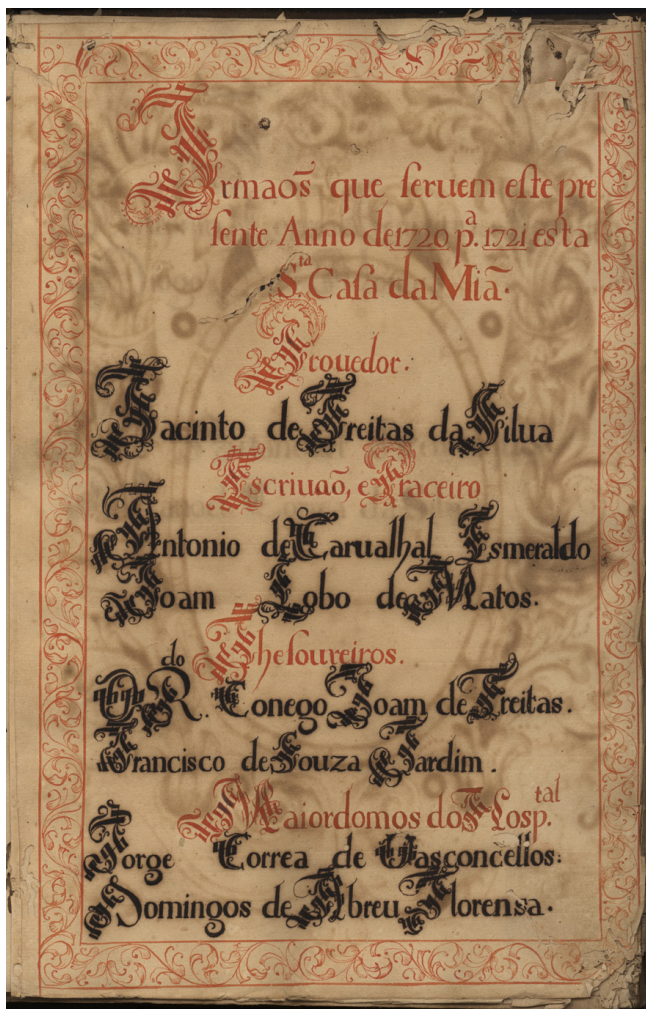 Irmaos̃ que ſeruem eſte pre
ſente Anno de 1720 p.ª 1721 esta
S.ta Caſa da Miã.
Prouedor.
Jacinto de Freitas da Silua
Escriuaõ, e Praceiro
Antonio de Caruallhal Esmeraldo
Joam Lobo de Matos.
Theſoureiros.
O R.do Conego Joam de Freitas.
Francisco de Souza Jardim.
Maiordomos do Hosp.tal
Jorge Correa de Vasconcellos:
Domingos de Abreu Florensa.